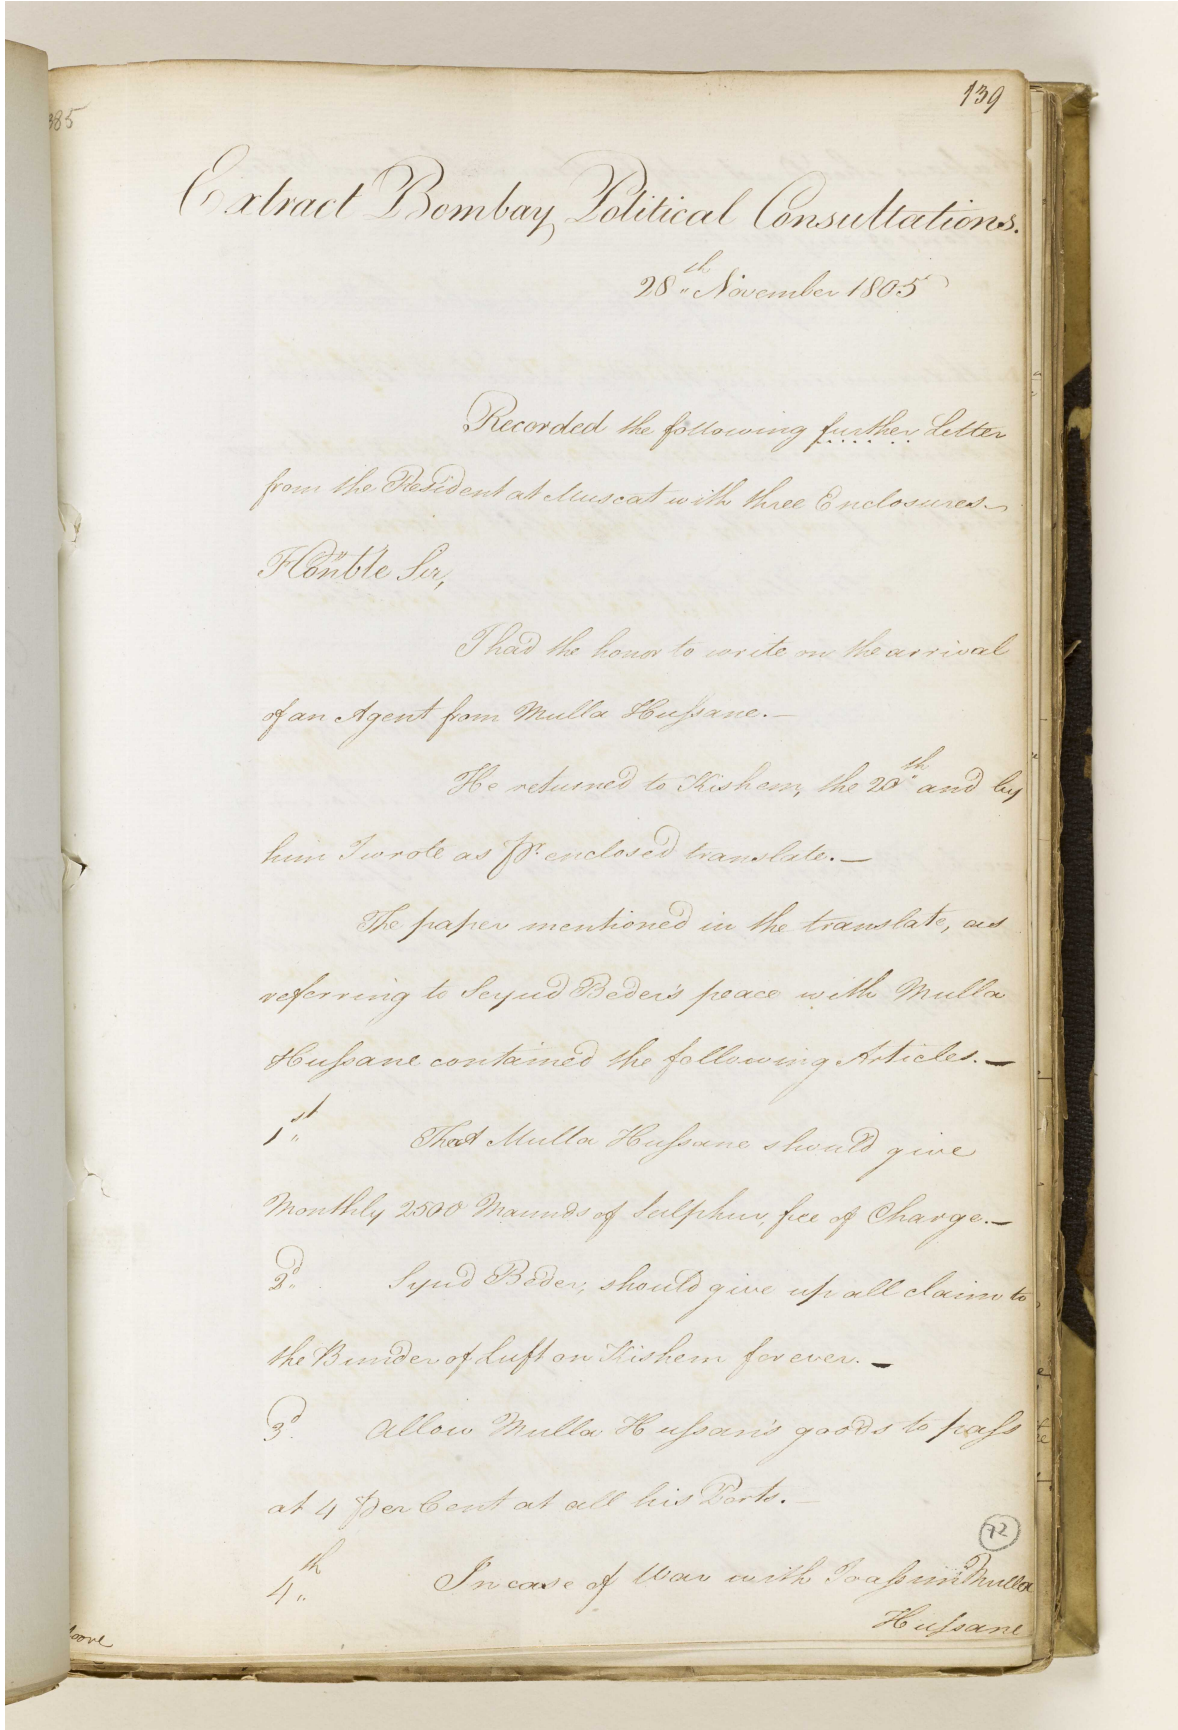 139
385
Extract Bombay Political Consultations.
28th November 1805
Recorded the following further Letter
from the Resident at Muscat with three Enclosures
Hon'ble Sir,
I had the honor to write on the arrival
of an Agent from Mulla Hussane.—
He returned to Kishem, the 20th and by
him I wrote as pr. enclosed translate.—
The paper mentioned in the translate, as
referring to Seyud Beder's peace with Mulla
Hussane contained the following Articles.—
1st That Mulla Hussane should give
Monthly 2500 Maunds of Sulphur, free of Charge.—
2d. Syud Beder, should give up all claim to
the Bunder of Luft on Kishem for ever.—
3d. Allow Mulla Hussan's goods to pass
at 4 per Cent at all his Ports.—
72
4th In case of War with Mulla
Hussane